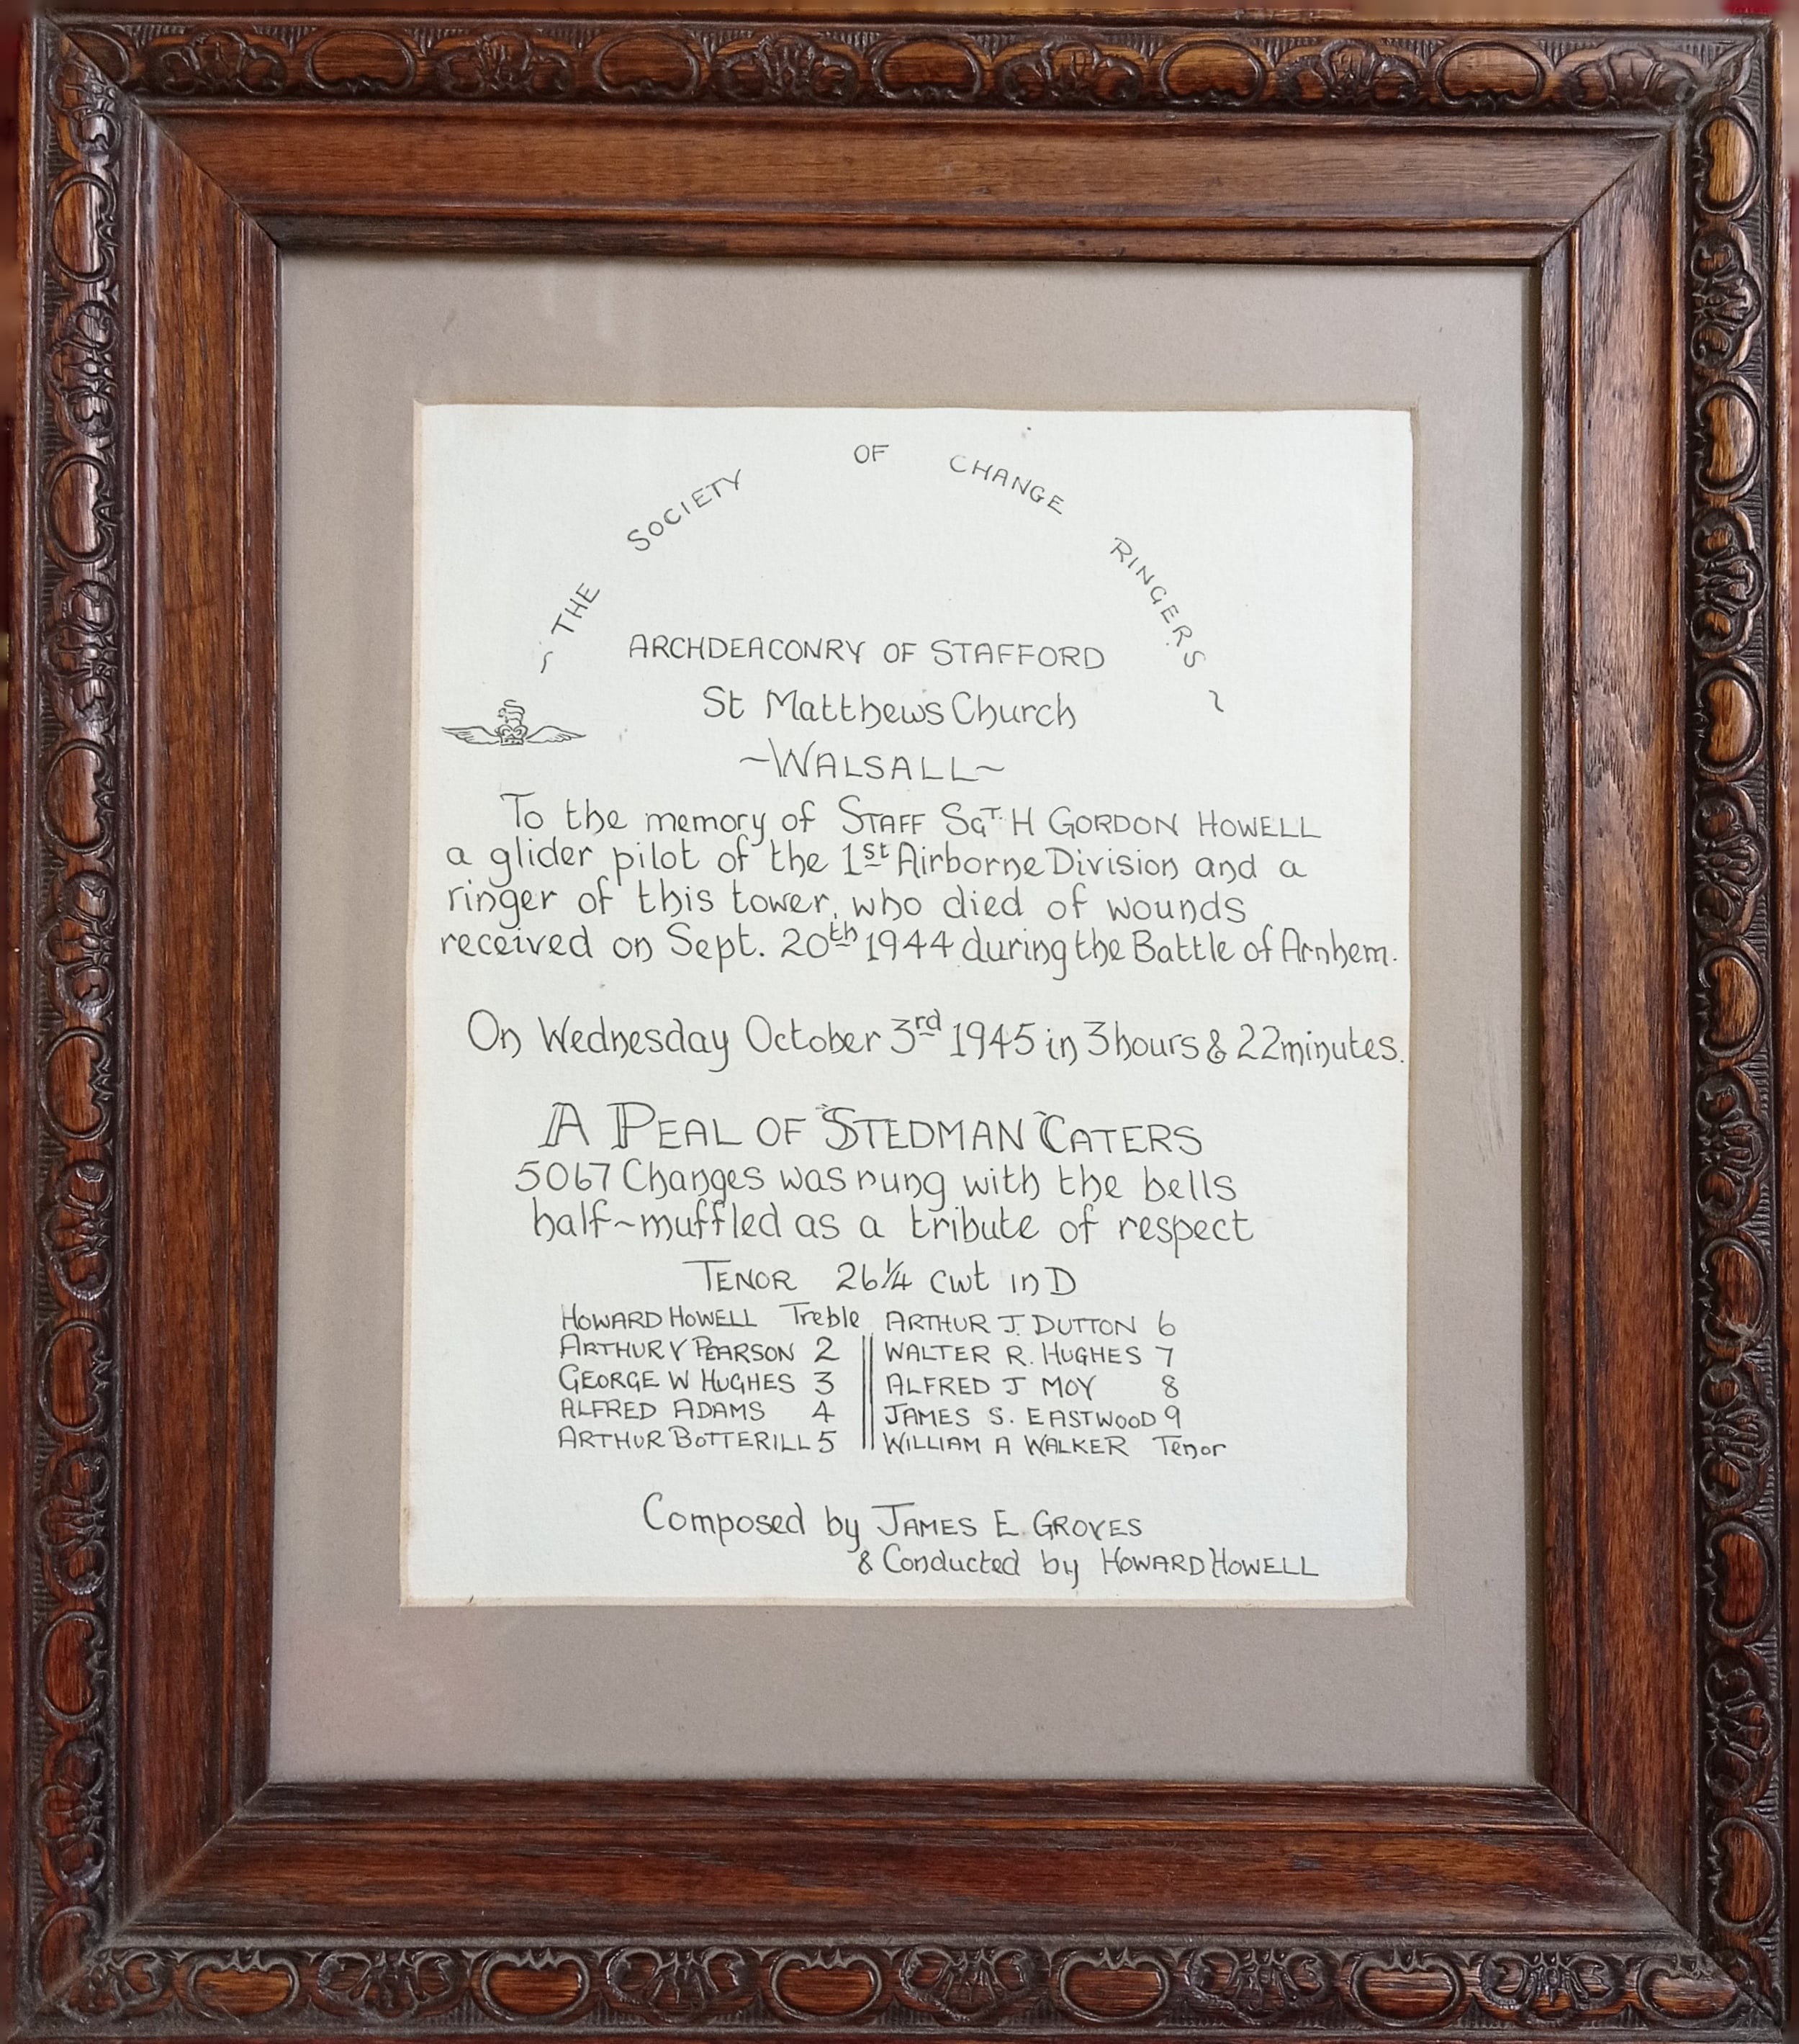 ~ THE SOCIETY OF CHANGE RINGERS ~
ARCHDEACONRY OF STAFFORD
St Matthews Church
~WALSALL~
To the memory of STAFF SGT. H GORDON HOWELL
a glider pilot of the 1st Airborne Division and a
ringer of this tower, who died of wounds
received on Sept. 20th 1944 during the Battle of Arnhem.
On Wednesday October 3rd 1945 in 3 hours & 22 minutes.
A PEAL OF STEDMAN CATERS
5067 Changes was rung with the bells
half~muffled as a tribute of respect
TENOR 26¼ cwt in D
HOWARD HOWELL Treble ARTHUR J. DUTTON 6
ARTHUR V PEARSON 2 WALTER R. HUGHES 7
GEORGE W HUGHES 3 ALFRED J MOY 8
ALFRED ADAMS 4 JAMES S. EASTWOOD 9
ARTHUR BOTTERILL 5 WILLIAM A WALKER Tenor
Composed by JAMES E. GROVES
& Conducted by HOWARD HOWELL